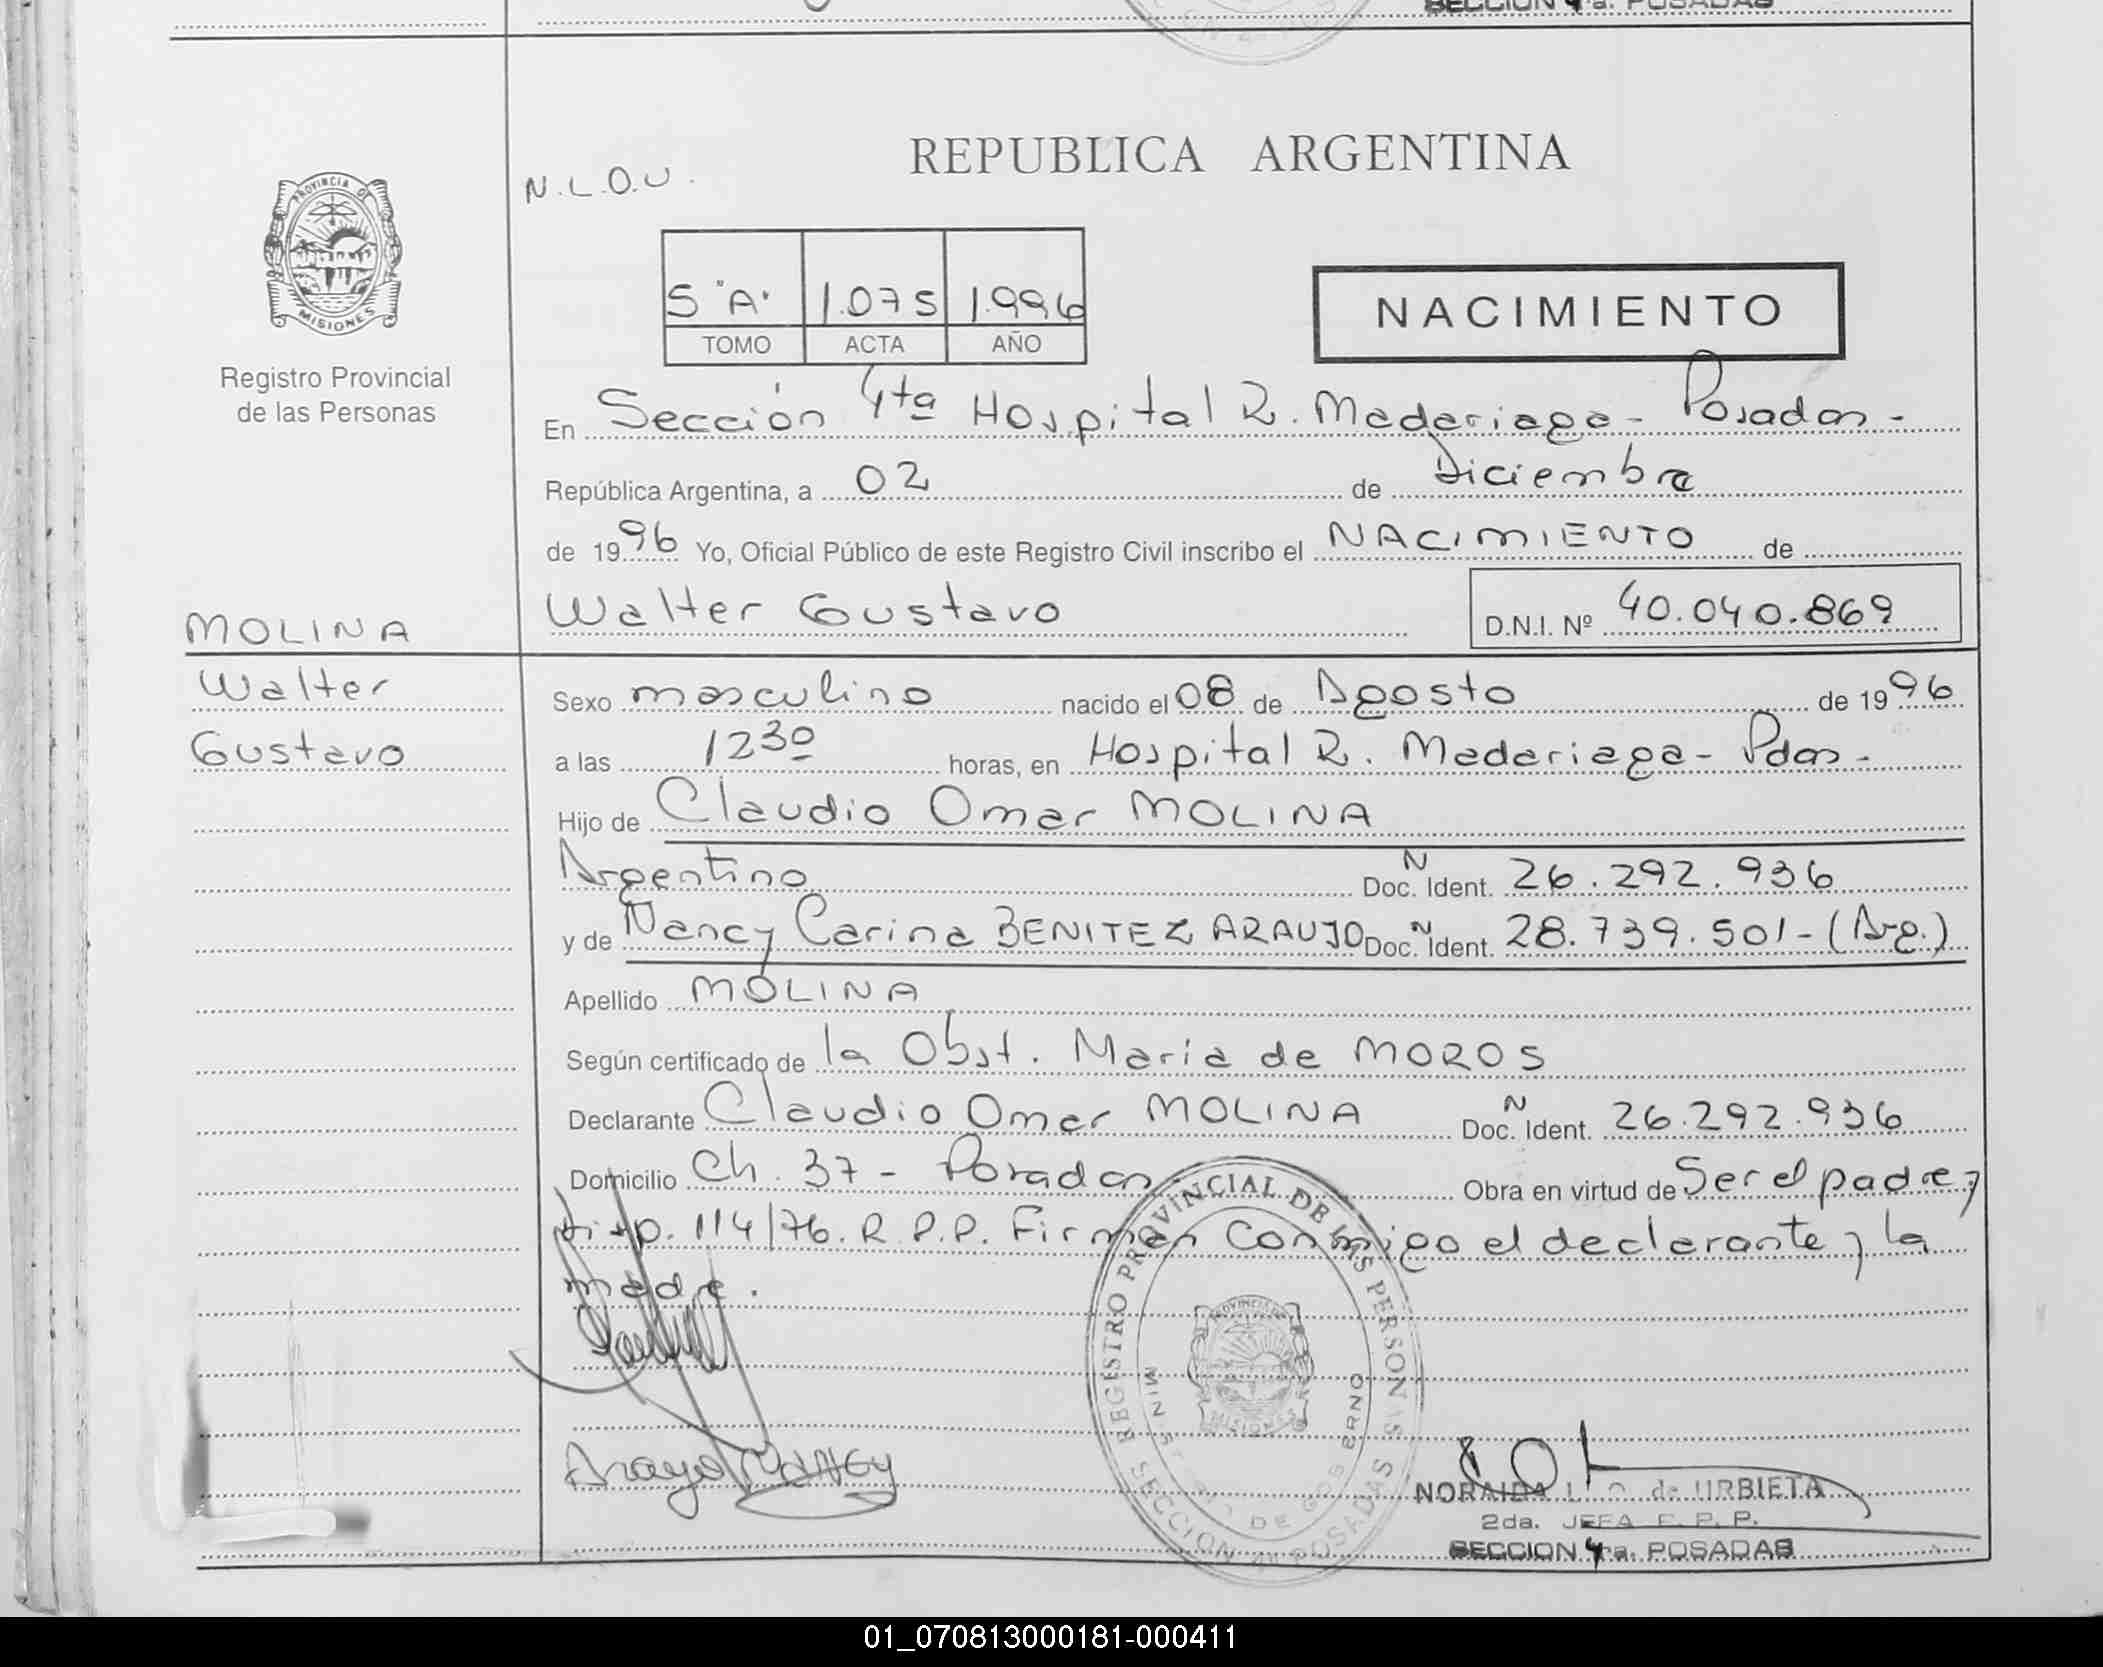 SECCION 4ra. POSADAS
REPUBLICA ARGENTINA
N.L.O.U.
PROVINCIA DE
MISIONES
Registro Provincial
de las Personas
5 "A" 1.075 1.996
TOMO ACTA AÑO
NACIMIENTO
En Sección 4ta Hospital R. Madariaga - Posadas -
República Argentina, a 02 de Diciembre
de 1996 Yo, Oficial Público de este Registro Civil inscribo el NACIMIENTO de
Walter Gustavo D.N.I. Nº 40.040.869
MOLINA
Walter
Gustavo
Sexo masculino nacido el 08 de Agosto de 1996
a las 12 30 horas, en Hospital R. Madariaga - Pdas -
Hijo de Claudio Omar MOLINA
Argentino N Doc. Ident. 26.292.936
y de Nancy Carina BENITEZ ARAUJO N Doc. Ident. 28.739.501 - (Arg.)
Apellido MOLINA
Según certificado de la Obst. Maria de MOROS
Declarante Claudio Omar MOLINA N Doc. Ident. 26.292.936
Domicilio Ch. 37 - Posadas Obra en virtud de Ser el padre y
disp. 114/76. R.P.P. Firman Conmigo el declarante y la
madre.
REGISTRO PROVINCIAL DE LAS PERSONAS
MINISTERIO DE GOBIERNO
PROVINCIA DE
MISIONES
SECCION 4ª POSADAS
Araujo NANCY
NORAIDA de URBIETA
2da. JEFA F. P. P.
SECCION 4ra. POSADAS
01_070813000181-000411